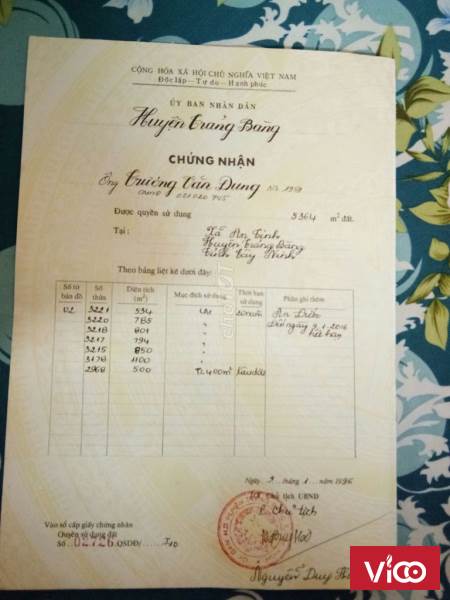 CỘNG HÒA XÃ HỘI CHỦ NGHĨA VIỆT NAM
Độc lập – Tự do – Hạnh phúc
ỦY BAN NHÂN DÂN
Huyện Trảng Bàng
CHỨNG NHẬN
Ông Trương Văn Dung
Được quyền sử dụng 5364 m² đất.
Tại : Xã An Tịnh
Huyện Trảng Bàng
Tỉnh Tây Ninh
Theo bảng liệt kê dưới đây:
Số tờ bản đồ Số thửa Diện tích (m²) Mục đích sử dụng Thời hạn sử dụng Phần ghi thêm
02 3221 534 20 năm
3220 785 "
3218 801 "
3217 794 "
3215 850 "
3178 1100 "
2968 500 400m²
Ngày 9 tháng 1 năm 1996
Chủ tịch UBND
Chủ tịch
Vào sổ cấp giấy chứng nhận
Quyền sử dụng đất
Số 02726 QSDĐ/
Nguyễn Duy
Vico